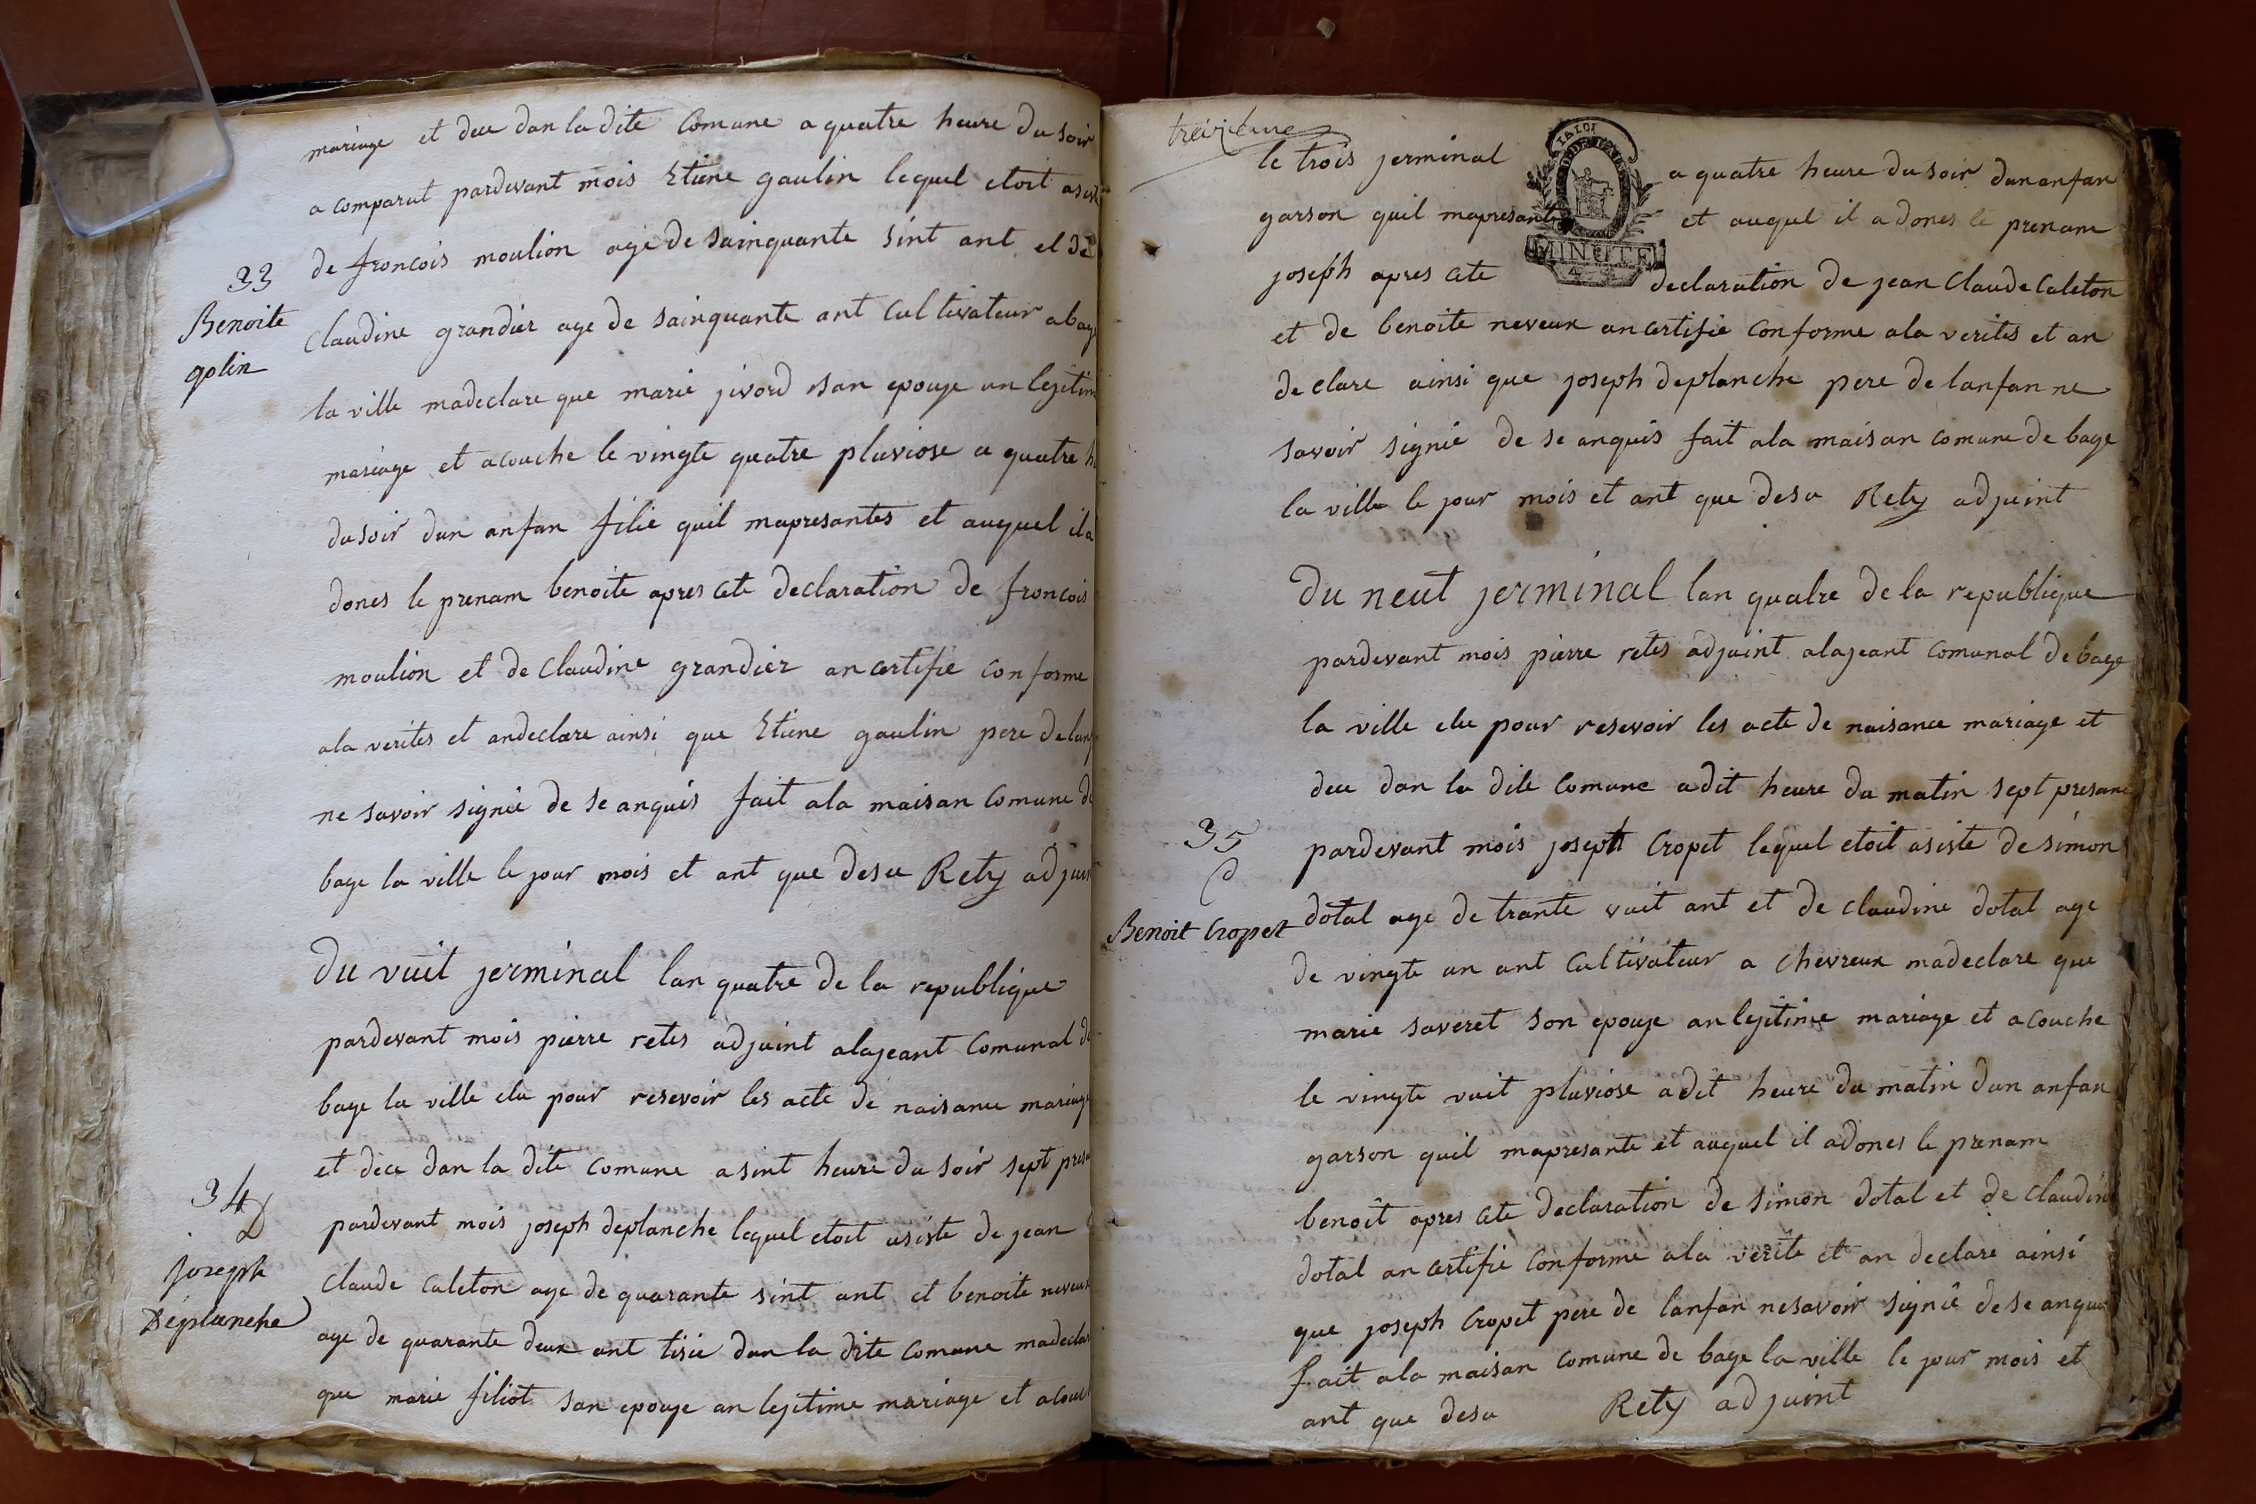 mariage et dece dan la dite Comune a quatre heure du soir
a comparut pardevant mois Etiene gaulin lequel etoit asist
de froncois moulion age de sainquante sint ant et de
33
Benoite
golin
Claudine grandier age de sainquante ant Cultivateur a bage
la ville madeclare que marie jivord san epouze an lejitim
mariage et acouche le vingte quatre pluviose a quatre h
du soir dun anfan filie quil mapresantes et auquel il a
dones le prenam benoite apres cete declaration de froncois
moulion et de Claudine grandier an certifie conforme
ala verites et andeclare ainsi que Etiene gaulin pere de lanf
ne savoir signié de se anquis fait ala maisan Comune de
bage la ville le jour mois et ant que desu Rety adjuint
Du vuit jerminal lan quatre de la republique
pardevant mois pierre retes adjuint alajeant Comunal de
bage la ville elu pour resevoir les acte de naisance mariage
et dece dan la dite Comune a sint heure du soir sept presan
34
Joseph
Déplanche
pardevant mois joseph deplanche lequel etoit asiste de jean
Claude Caleton age de quarante sint ant et benoite neveux
age de quarante deux ant tisie dan la dite Comune madeclare
que marie filiot san epouze an lejitime mariage et acouch
treizieme
le trois jerminal a quatre heure du soir dun anfan
garson quil mapresante et auquel il a dones le prenam
joseph apres cete declaration de jean Claude Caleton
LA LOI
MINUTE
et de benoite neveux an certifie Conforme ala verites et an
declare ainsi que joseph deplanche pere de lanfan ne
savoir signié de se anquis fait ala maisan comune de bage
la ville le jour mois et ant que desu Rety adjuint
Du neut jerminal lan quatre de la republique
pardevant mois pierre retes adjuint alajeant Comunal de bage
la ville elu pour resevoir les acte de naisance mariage et
dece dan la dite Comune a dit heure du matin sept presante
35
Benoit Cropet
pardevant mois joseph Cropet lequel etoit asiste de simon
dotal age de trante vuit ant et de claudine dotal age
de vingte un ant Cultivateur a chevreux madeclare que
marie saveret son epouze an lejitime mariage et acouche
le vingte vuit pluviose a dit heure du matin dun anfan
garson quil mapresante et auquel il adones le prenam
benoit apres cete declaration de simon dotal et de claudine
dotal an certifie Conforme ala verite et an declare ainsi
que joseph Cropet pere de lanfan ne savoir signié de se anquis
fait ala maisan Comune de bage la ville le jour mois et
ant que desu Rety adjuint